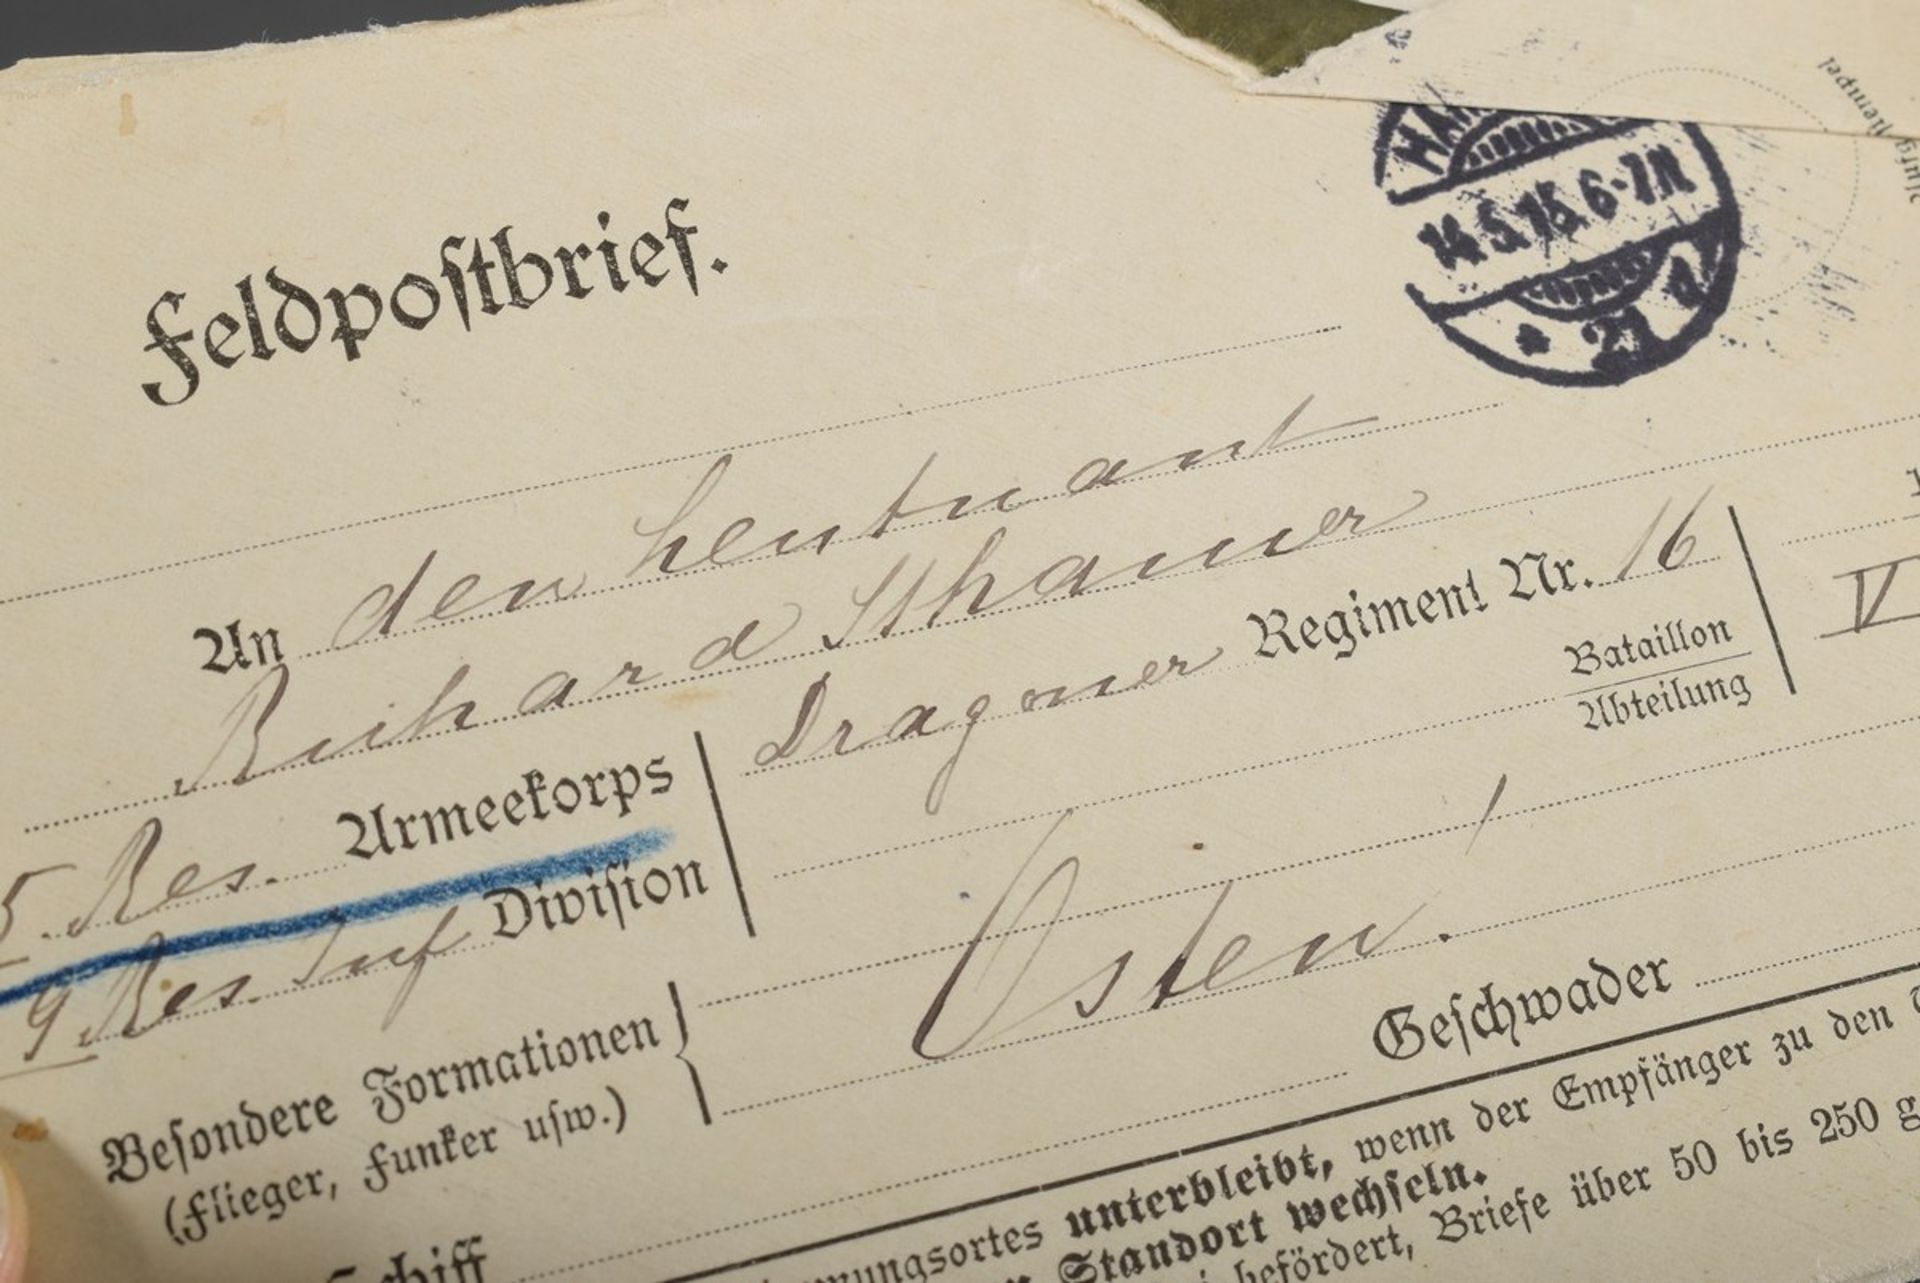 Feldpostbrief.
14.5.15. 6-7N
* 21
An den Leutnant
Richard Sthamer
5. Res. Armeekorps
Dragoner Regiment Nr. 16
9 Res Inf Division
Bataillon
Abteilung
IV
Osten!
Besondere Formationen
(Flieger, Funker usw.)
Geschwader
Schiff
unterbleibt, wenn der Empfänger zu den
Standort wechseln.
befördert, Briefe über 50 bis 250 g